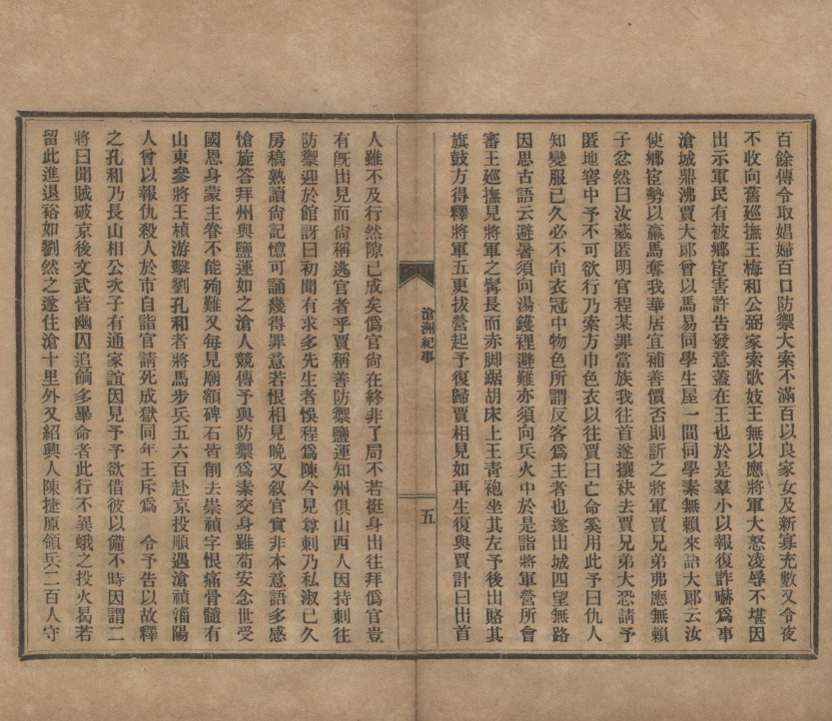 百餘傳令取娼婦百口防禦大索不滿百以良家女及新寡充數又令夜
不收向舊巡撫王梅和公弼家索歌妓王無以應將軍大怒凌辱不堪因
出示軍民有被鄉宦害許告發意蓋在王也於是羣小以報復詐嚇爲事
滄城鼎沸賈大郎曾以馬易同學生屋一間同學素無賴來語大郎云汝
使鄉宦勢以羸馬奪我華居宜補善價否則訴之將軍賈兄弟弗應無賴
子忿然曰汝藏匿明官程某罪當族我往首遂攘袂去賈兄弟大恐請予
匿地窖中予不可欲行乃索方巾色衣以往賈曰亡命奚用此予曰仇人
知變服已久必不向衣冠中物色所謂反客爲主者也遂出城四望無路
因思古語云避暑須向湯鑊裡避難亦須向兵火中於是詣將軍營所會
審王巡撫見將軍之髯長而赤脚踞胡床上王青袍坐其左予後出賂其
旗鼓方得釋將軍五更拔營起予復歸賈相見如再生復與賈計曰出首
滄洲紀事
五
人雖不及行然隙已成矣僞官尙在終非了局不若挺身出往拜僞官豈
有旣出見而尙稱逃官者乎賈稱善防禦鹽運知州俱山西人因持刺往
防禦迎於館訝曰初聞有求多先生者悞程爲陳今見尊刺乃私淑已久
房稿熟讀尙記憶可誦幾得罪意若恨相見晚又叙官實非本意語多感
愴旋答拜州與鹽運如之滄人競傳予與防禦爲素交身雖苟安念世受
國恩身蒙主眷不能殉難又每見廟額碑石皆削去崇禎字恨痛骨髓有
山東參將王楨游擊劉孔和者將馬步兵五六百赴京投順遇滄楨淄陽
人曾以報仇殺人於市自詣官請死成獄同年王斥爲　令予告以故釋
之孔和乃長山相公次子有通家誼因見予予欲借彼以備不時因謂二
將曰聞賊破京後文武皆幽囚追餉多畢命者此行不異蛾之投火曷若
留此進退裕如劉然之遂住滄十里外又紹興人陳捷原領兵二百人守